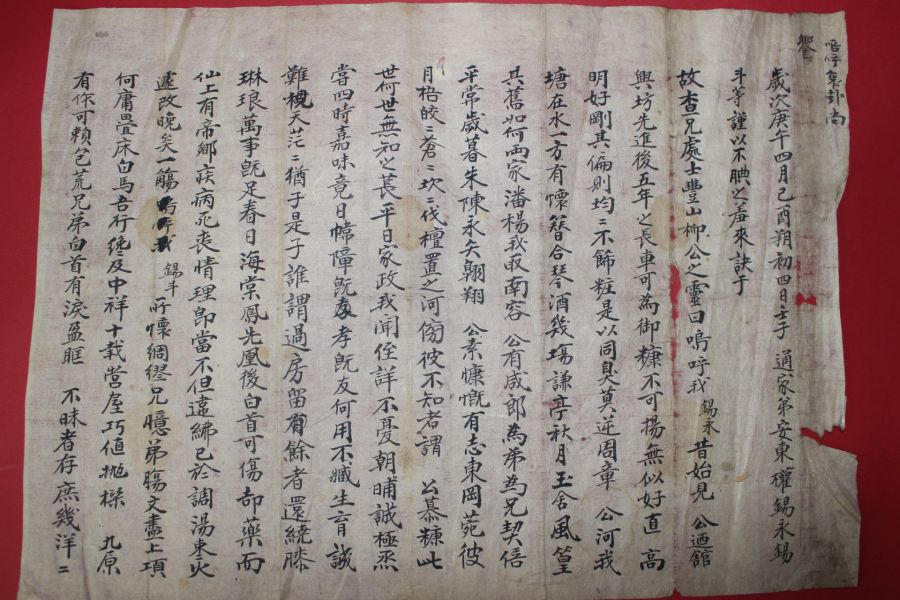 歲次庚午四月己酉朔初四日壬子 通家弟安東權錫永錫
斗等謹以不腆之羞來訣于
故查兄處士豊山柳公之靈曰嗚呼我 錫永 昔始見 公迺館
與坊先進後五年之長車可為御糠不可揚無似好直 高
明好剛其偏則均二不飾粧是以同臭莫逆周章 公河我
塘在水一方有懷簪合琴酒幾塲謙亭秋月玉舍風篁
其舊如何兩家潘楊我取南容 公有咸郎為弟為兄契倍
平常歲暮朱陳永矢翱翔 公素慷慨有志東岡菀彼
月梧皎二蒼二坎二伐檀置之河傍彼不知者謂 公慕糠此
世何世無知之萇平日家政我聞侄詳不憂朝晡誠極烝
嘗四時嘉味竟日幃障旣孝旣友何用不臧生言誠
難視天茫二猶子是子誰謂過房留有餘者還繞膝
琳琅萬事旣足春日海棠鳳先凰後白首可傷却藥而
仙上有帝鄉疾病死丧情理卽當不但違紼已於調湯束火
遽改晚矣一觴嗚呼我 錫斗 所懷綢繆兄臆弟膓文盡上項
何庸疊床白馬吾行纔及中祥十載営屋巧值抛樑 九原
有你可賴包荒兄弟白首有淚盈眶 不昧者存庶幾洋二
嗚呼哀哉尚
饗